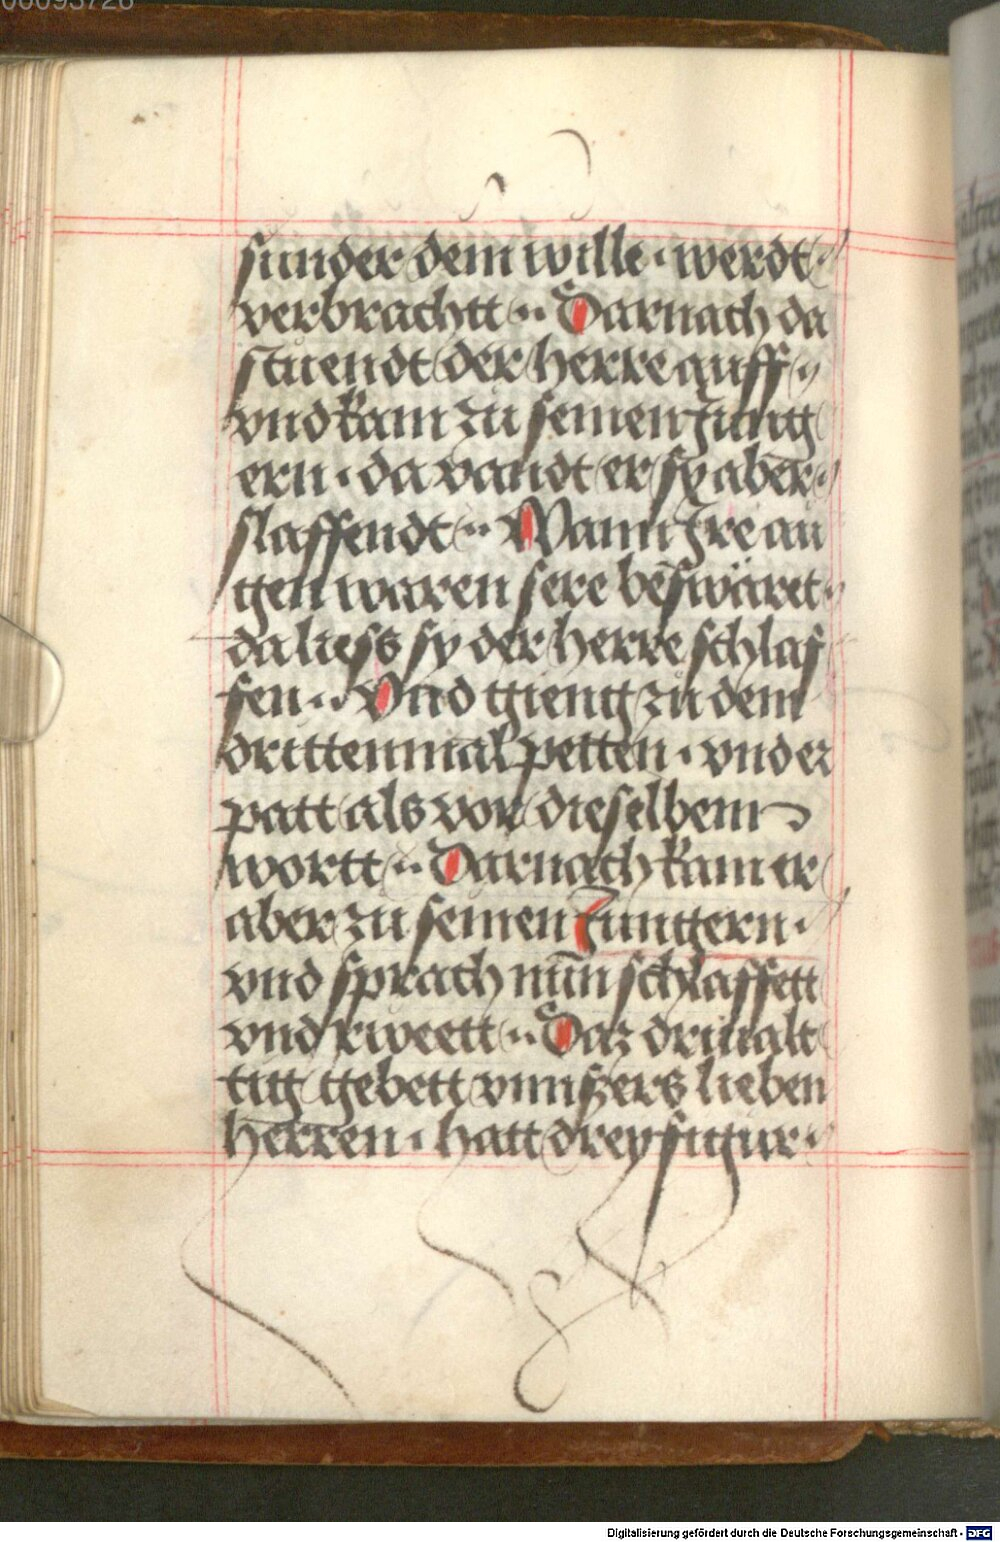 00095726
sunder dem wille · werdt
verbrachtt ·· Darnach da
stuendt der herre auff
vnd kam zu seinen Jung
ern · da vandt er sy aber
slaffendt ·· Wann Jre au
gen waren sere beswäret
da liess sy der herre schlaf
fen ·· Vnd gieng zu dem
drittenmal petten · vnd er
patt als vor dieselbenn
wortt ·· Darnach kam er
aber zu seinen Jungern ·
vnd sprach nun schlaffett
vnd rweett ·· Daz driualt
tig gebett vnnsers lieben
herren · hatt drey figur ·
Digitalisierung gefördert durch die Deutsche Forschungsgemeinschaft - DFG